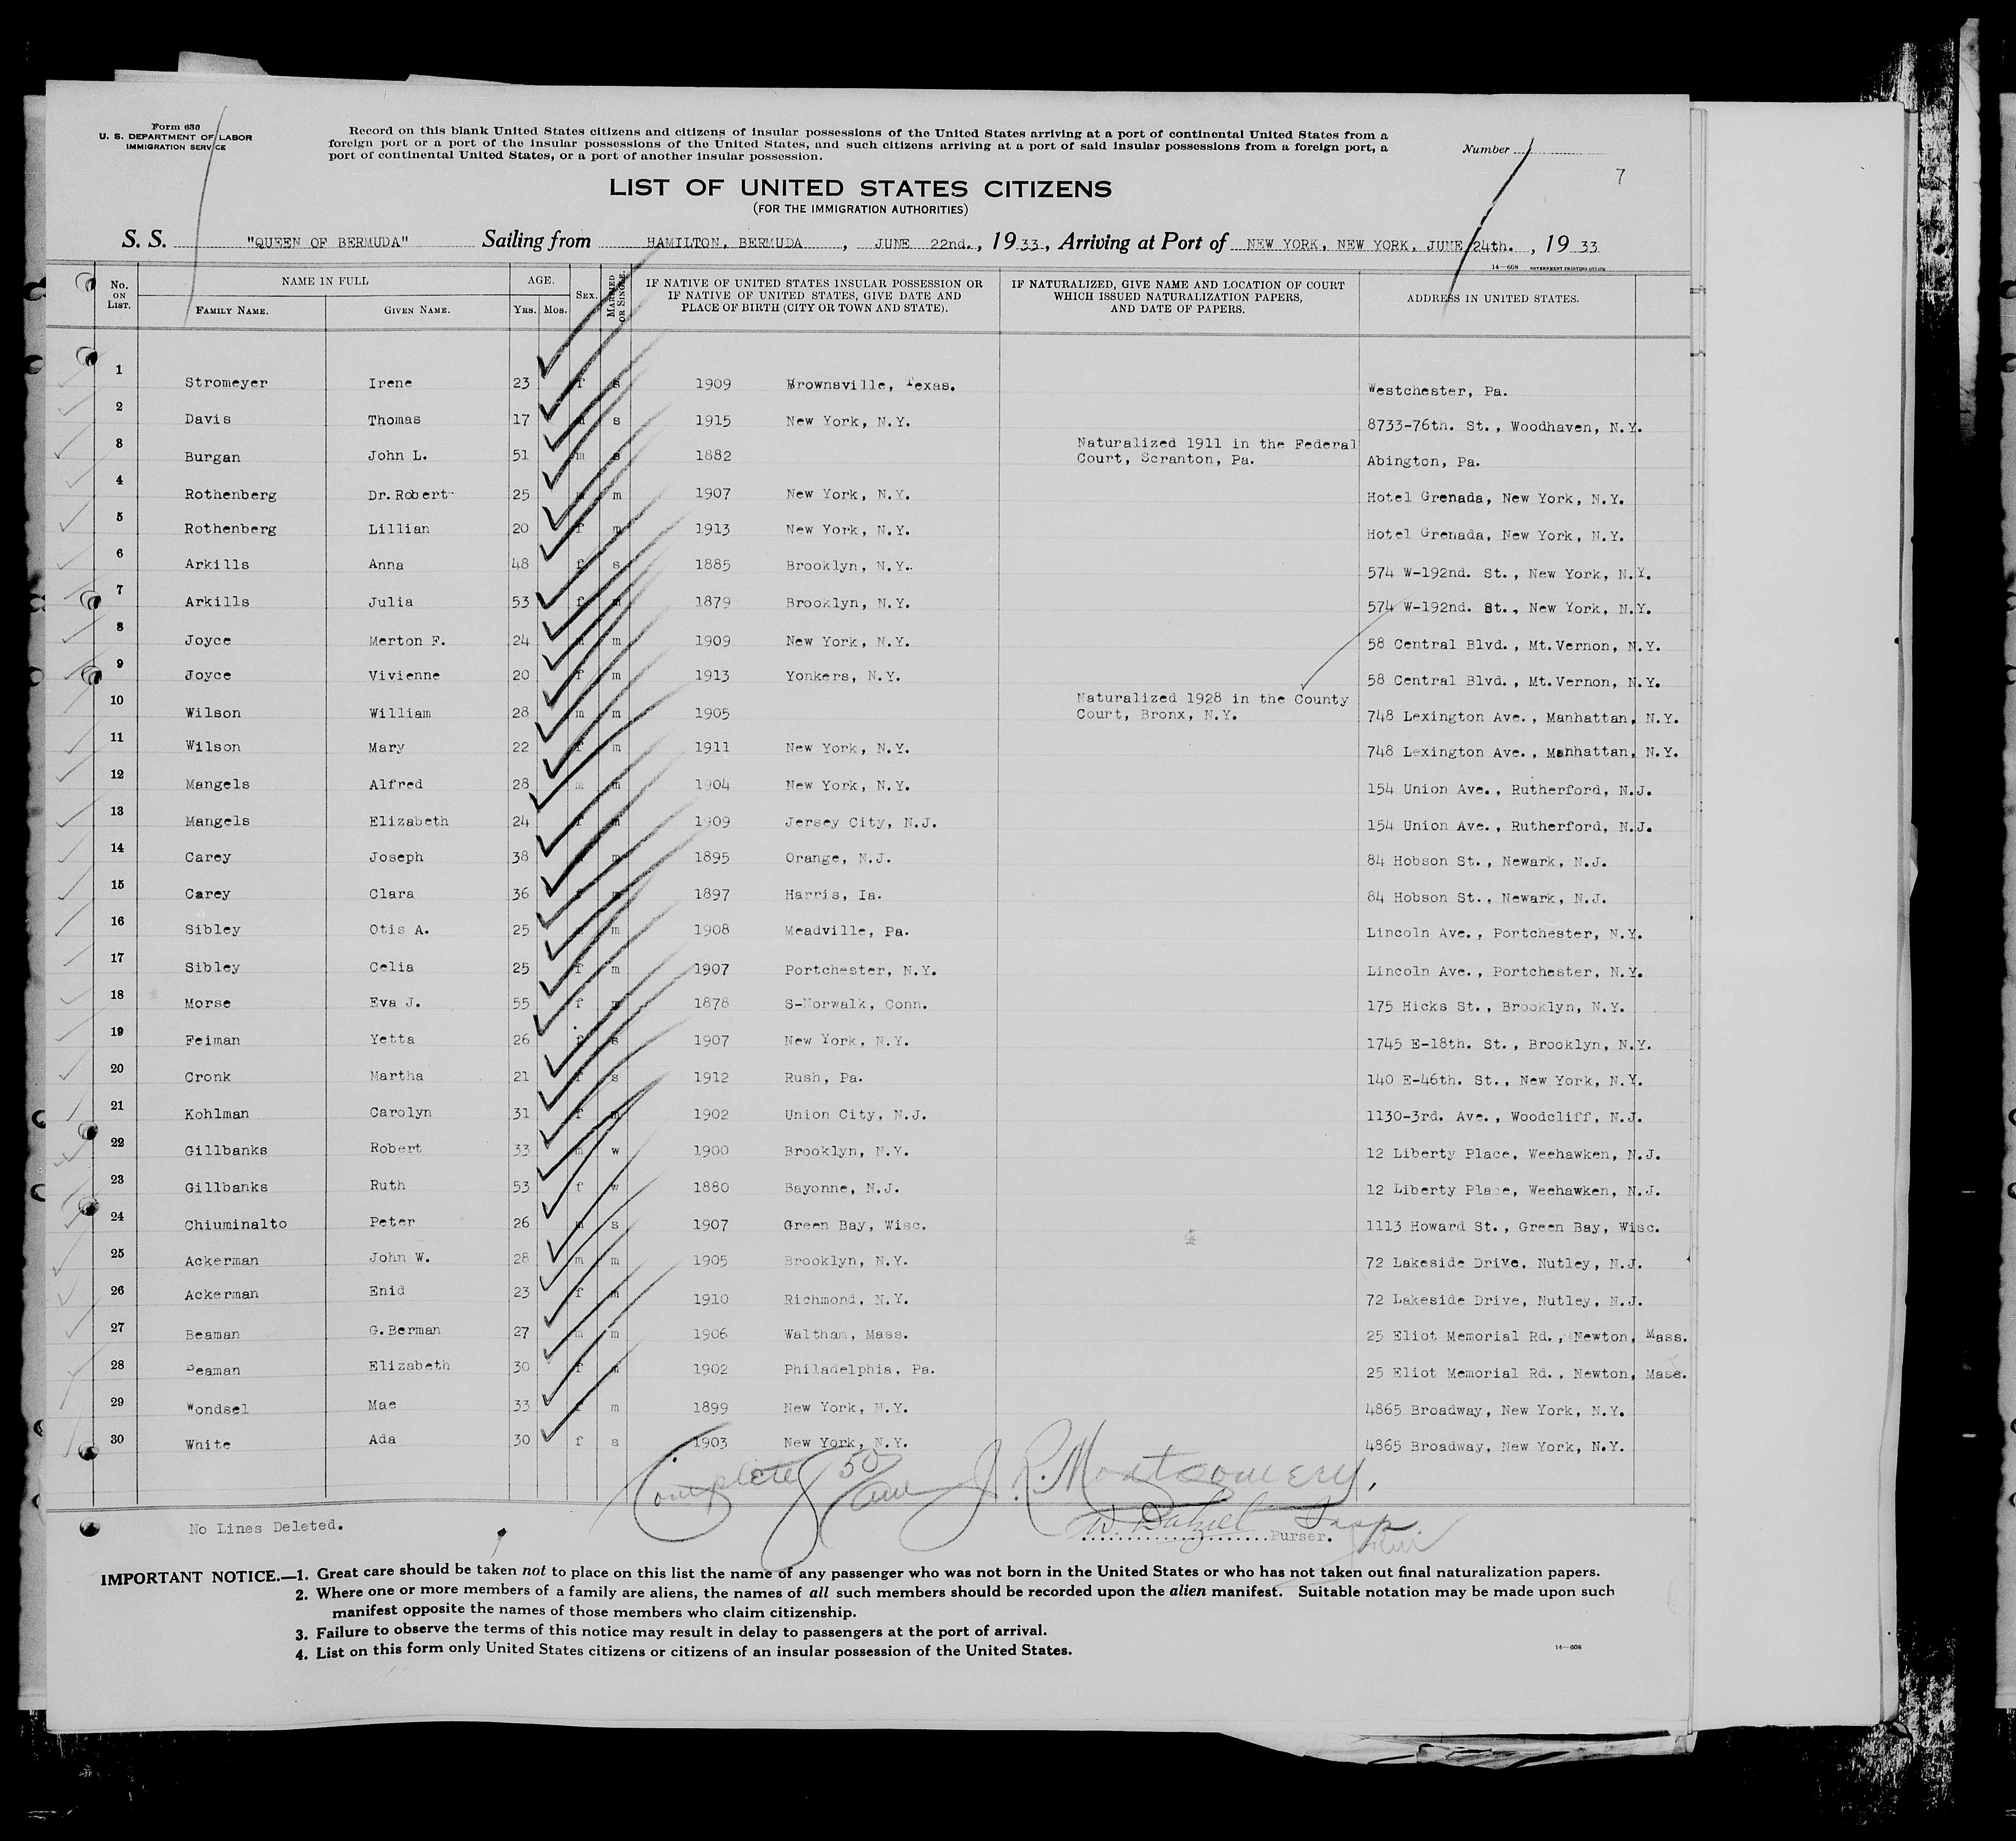 Form 630
U. S. DEPARTMENT OF LABOR
IMMIGRATION SERVICE
Record on this blank United States citizens and citizens of insular possessions of the United States arriving at a port of continental United States from a
foreign port or a port of the insular possessions of the United States, and such citizens arriving at a port of said insular possessions from a foreign port, a
port of continental United States, or a port of another insular possession.
Number
7
LIST OF UNITED STATES CITIZENS
(FOR THE IMMIGRATION AUTHORITIES)
S. S. "QUEEN OF BERMUDA" Sailing from HAMILTON, BERMUDA, JUNE 22nd., 1933., Arriving at Port of NEW YORK, NEW YORK, JUNE 24th., 1933
14—608 GOVERNMENT PRINTING OFFICE
No. ON LIST. NAME IN FULL FAMILY NAME. GIVEN NAME. AGE. YRS. MOS. SEX. MARRIED OR SINGLE. IF NATIVE OF UNITED STATES INSULAR POSSESSION OR IF NATIVE OF UNITED STATES, GIVE DATE AND PLACE OF BIRTH (CITY OR TOWN AND STATE). IF NATURALIZED, GIVE NAME AND LOCATION OF COURT WHICH ISSUED NATURALIZATION PAPERS, AND DATE OF PAPERS. ADDRESS IN UNITED STATES.
1 Stromeyer Irene 23 f s 1909 Brownsville, Texas. Westchester, Pa.
2 Davis Thomas 17 s 1915 New York, N.Y. 8733-76th. St., Woodhaven, N.Y.
3 Burgan John L. 51 m s 1882 Naturalized 1911 in the Federal Court, Scranton, Pa. Abington, Pa.
4 Rothenberg Dr. Robert 25 m 1907 New York, N.Y. Hotel Grenada, New York, N.Y.
5 Rothenberg Lillian 20 f m 1913 New York, N.Y. Hotel Grenada, New York, N.Y.
6 Arkills Anna 48 f s 1885 Brooklyn, N.Y. 574 W-192nd. St., New York, N.Y.
7 Arkills Julia 53 f m 1879 Brooklyn, N.Y. 574 W-192nd. St., New York, N.Y.
8 Joyce Merton F. 24 m 1909 New York, N.Y. 58 Central Blvd., Mt.Vernon, N.Y.
9 Joyce Vivienne 20 f m 1913 Yonkers, N.Y. 58 Central Blvd., Mt.Vernon, N.Y.
10 Wilson William 28 m m 1905 Naturalized 1928 in the County Court, Bronx, N.Y. 748 Lexington Ave., Manhattan, N.Y.
11 Wilson Mary 22 f m 1911 New York, N.Y. 748 Lexington Ave., Manhattan, N.Y.
12 Mangels Alfred 28 m m 1904 New York, N.Y. 154 Union Ave., Rutherford, N.J.
13 Mangels Elizabeth 24 f m 1909 Jersey City, N.J. 154 Union Ave., Rutherford, N.J.
14 Carey Joseph 38 m 1895 Orange, N.J. 84 Hobson St., Newark, N.J.
15 Carey Clara 36 f m 1897 Harris, Ia. 84 Hobson St., Newark, N.J.
16 Sibley Otis A. 25 m 1908 Meadville, Pa. Lincoln Ave., Portchester, N.Y.
17 Sibley Celia 25 f m 1907 Portchester, N.Y. Lincoln Ave., Portchester, N.Y.
18 Morse Eva J. 55 f m 1878 S-Norwalk, Conn. 175 Hicks St., Brooklyn, N.Y.
19 Feiman Yetta 26 f s 1907 New York, N.Y. 1745 E-18th. St., Brooklyn, N.Y.
20 Cronk Martha 21 f s 1912 Rush, Pa. 140 E-46th. St., New York, N.Y.
21 Kohlman Carolyn 31 f m 1902 Union City, N.J. 1130-3rd. Ave., Woodcliff, N.J.
22 Gillbanks Robert 33 m w 1900 Brooklyn, N.Y. 12 Liberty Place, Weehawken, N.J.
23 Gillbanks Ruth 53 f w 1880 Bayonne, N.J. 12 Liberty Place, Weehawken, N.J.
24 Chiuminalto Peter 26 m s 1907 Green Bay, Wisc. 1113 Howard St., Green Bay, Wisc.
25 Ackerman John W. 28 m m 1905 Brooklyn, N.Y. 72 Lakeside Drive, Nutley, N.J.
26 Ackerman Enid 23 f m 1910 Richmond, N.Y. 72 Lakeside Drive, Nutley, N.J.
27 Beaman G.Berman 27 m m 1906 Waltham, Mass. 25 Eliot Memorial Rd., Newton, Mass.
28 Beaman Elizabeth 30 f m 1902 Philadelphia, Pa. 25 Eliot Memorial Rd., Newton, Mass.
29 Wondsel Mae 33 f m 1899 New York, N.Y. 4865 Broadway, New York, N.Y.
30 White Ada 30 f s 1903 New York, N.Y. 4865 Broadway, New York, N.Y.
Complete 50 J. R. Montgomery,
No Lines Deleted.
W. Dalziel Purser. Insp
IMPORTANT NOTICE.—1. Great care should be taken not to place on this list the name of any passenger who was not born in the United States or who has not taken out final naturalization papers.
2. Where one or more members of a family are aliens, the names of all such members should be recorded upon the alien manifest. Suitable notation may be made upon such
manifest opposite the names of those members who claim citizenship.
3. Failure to observe the terms of this notice may result in delay to passengers at the port of arrival.
4. List on this form only United States citizens or citizens of an insular possession of the United States.
14—608